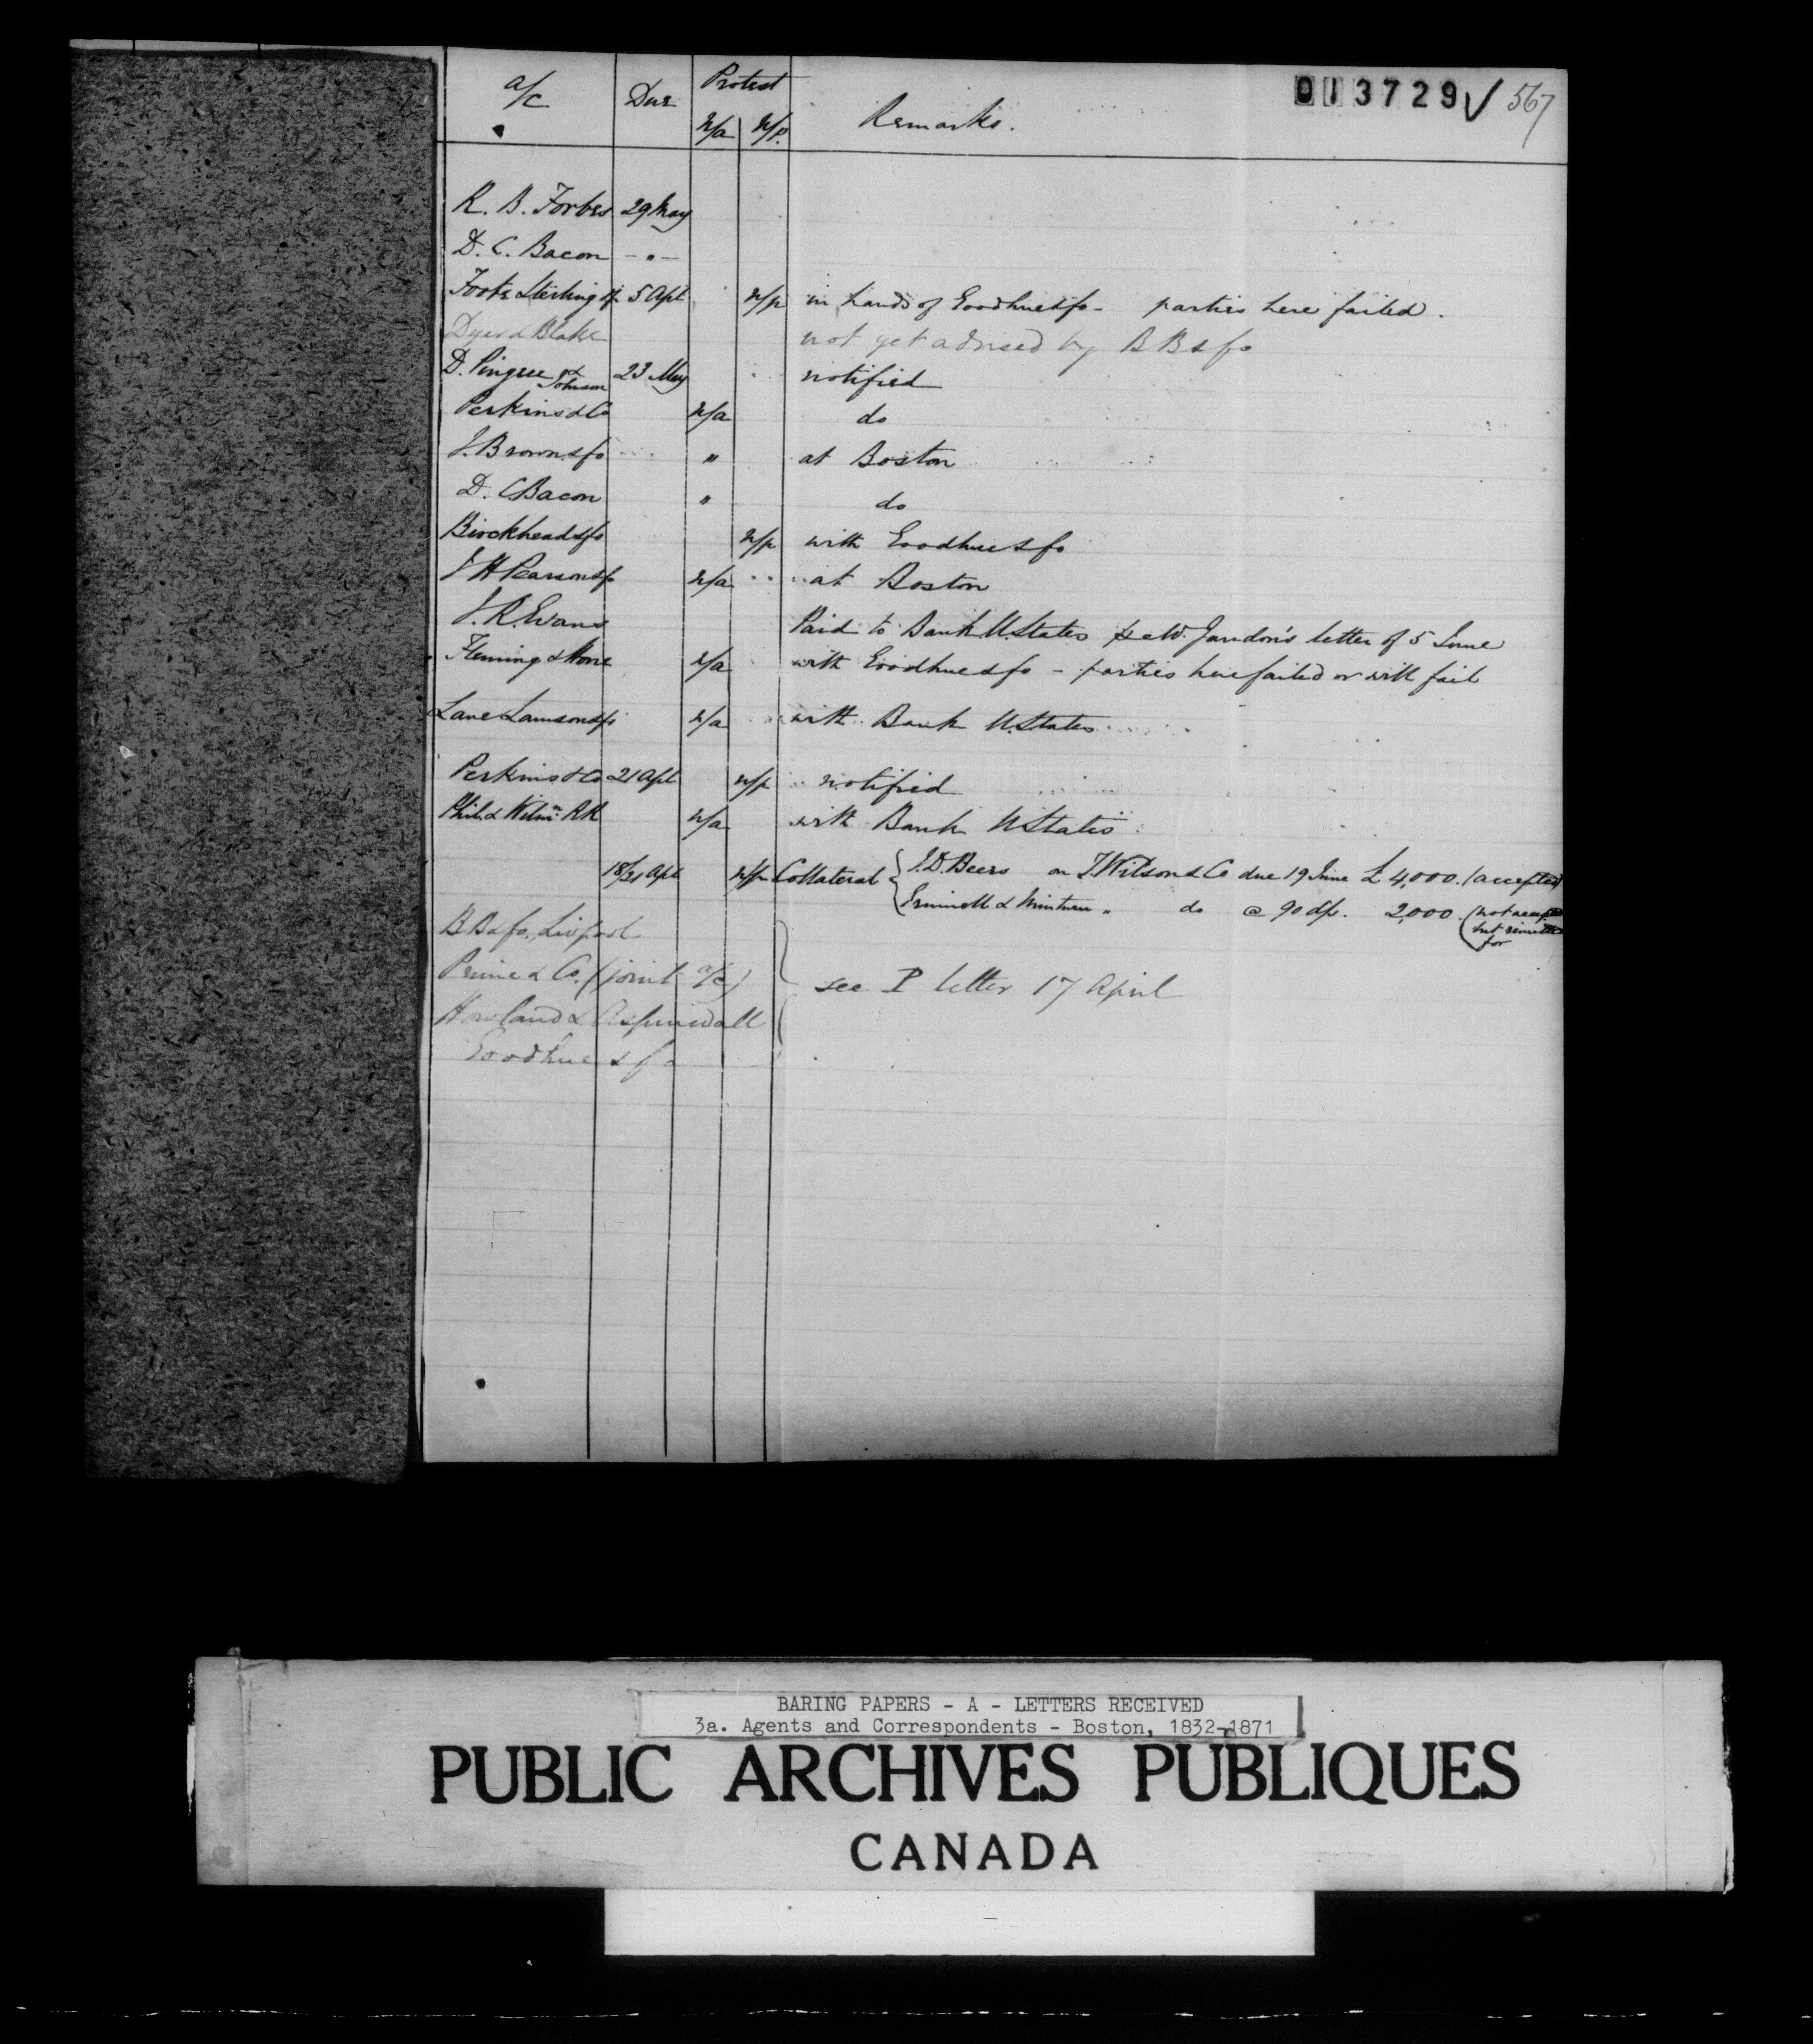 013729 √ 567
a/c Due Protest Remarks.
n/a n/p.
R. B. Forbes 29 May
D. C. Bacon - " -
Foote Sterling & 5 Apl n/p in hands of Goodhue & Co - parties here failed.
Dyer & Blake not yet advised by BB & Co
D. Pingree & Johnson 23 May notified
Perkins & Co n/a do
J. Brown & Co " at Boston
D. C Bacon " do
Birckhead & Co n/p with Goodhue & Co
J H Pearson & Co n/a at Boston
J. R. Evans Paid to Bank U States per W. Jaudon's letter of 5 June
Fleming & n/a with Goodhue & Co - parties here failed or will fail
Lane Lamson & Co n/a with Bank U. States
Perkins & Co 21 Apl n/p notified
Phil. & Wilmn RR n/a with Bank U States
18/21 Apl n/p Collateral { J. D. Beers on T. Wilson & Co due 19 June £ 4,000. (accepted)
Grinnell & Minturn " do @ 90 d/s. 2,000 (not accepted
but remitted
for
BB & Co. Livpool
Prime & Co. (joint a/c) } see P letter 17 April
Howland & Aspinwall
Goodhue & Co
BARING PAPERS - A - LETTERS RECEIVED
3a. Agents and Correspondents - Boston, 1832-1871
PUBLIC ARCHIVES PUBLIQUES
CANADA